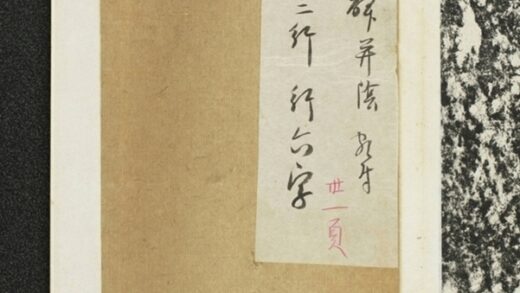 碑并陰
二行 行六字
卅一頁